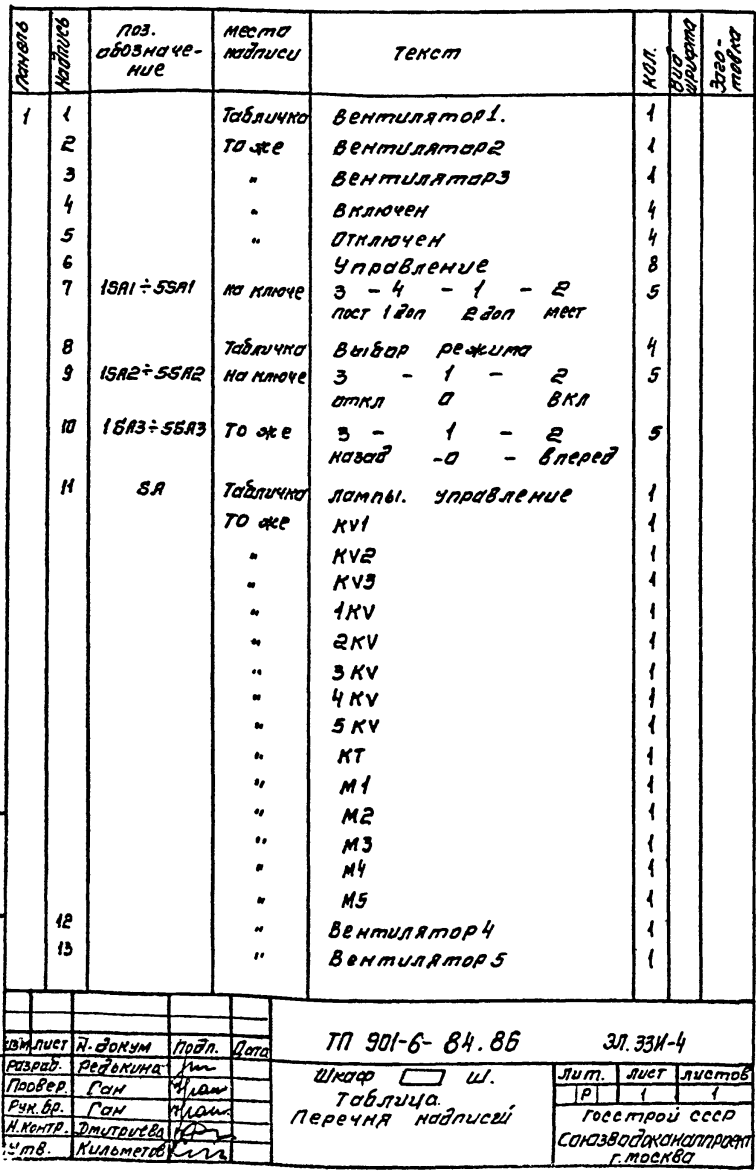 Панель Надпись поз. обозначение место надписи Текст кол. Вид шрифта Заготовка
1 1 Табличка Вентилятор 1. 1
2 То же Вентилятор 2 1
3 " Вентилятор 3 1
4 " Включен 4
5 " Отключен 4
6 Управление 8
7 1SA1÷5SA1 на ключе 3 - 4 - 1 - 2 5
пост 1 доп 2 доп мест
8 Табличка Выбор режима 4
9 1SA2÷5SA2 На ключе 3 - 1 - 2 5
откл 0 вкл
10 1SA3÷5SA3 То же 3 - 1 - 2 5
назад -0 - вперед
11 SA Табличка лампы. управление 1
То же KV1 1
" KV2 1
" KV3 1
" 1KV 1
" 2KV 1
" 3KV 1
" 4KV 1
" 5KV 1
" KT 1
" M1 1
" M2 1
" M3 1
" M4 1
" M5 1
12 " Вентилятор 4 1
13 " Вентилятор 5 1
ТП 901-6-84.86 ЭЛ.33И-4
Изм. лист N. докум Подп. Дата
Разраб. Редокина
Провер. Ган
Рук. бр. Ган
Н.контр. Дмитриева
Утв. Кильметов
Шкаф Ш.
Таблица
Перечня надписей
Лит. лист листов
Р 1 1
Госстрой СССР
Союзводоканалпроект
г. Москва